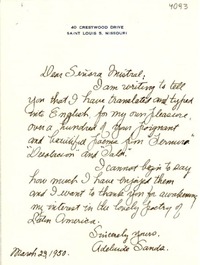 4093
40 CRESTWOOD DRIVE
SAINT LOUIS 5, MISSOURI
Dear Señora Mistral:
I am writing to tell
you that I have translated and typed
into English, for my own pleasure,
over a hundred of your poignant
and beautiful poems from "Ternura"
"Desolacion and Tala.
I cannot begin to say
how much I have enjoyed them
and I want to thank you for awakening
my interest in the lovely poetry of
Latin America.
Sincerely yours,
Adelaide Sands.
March 29, 1950.